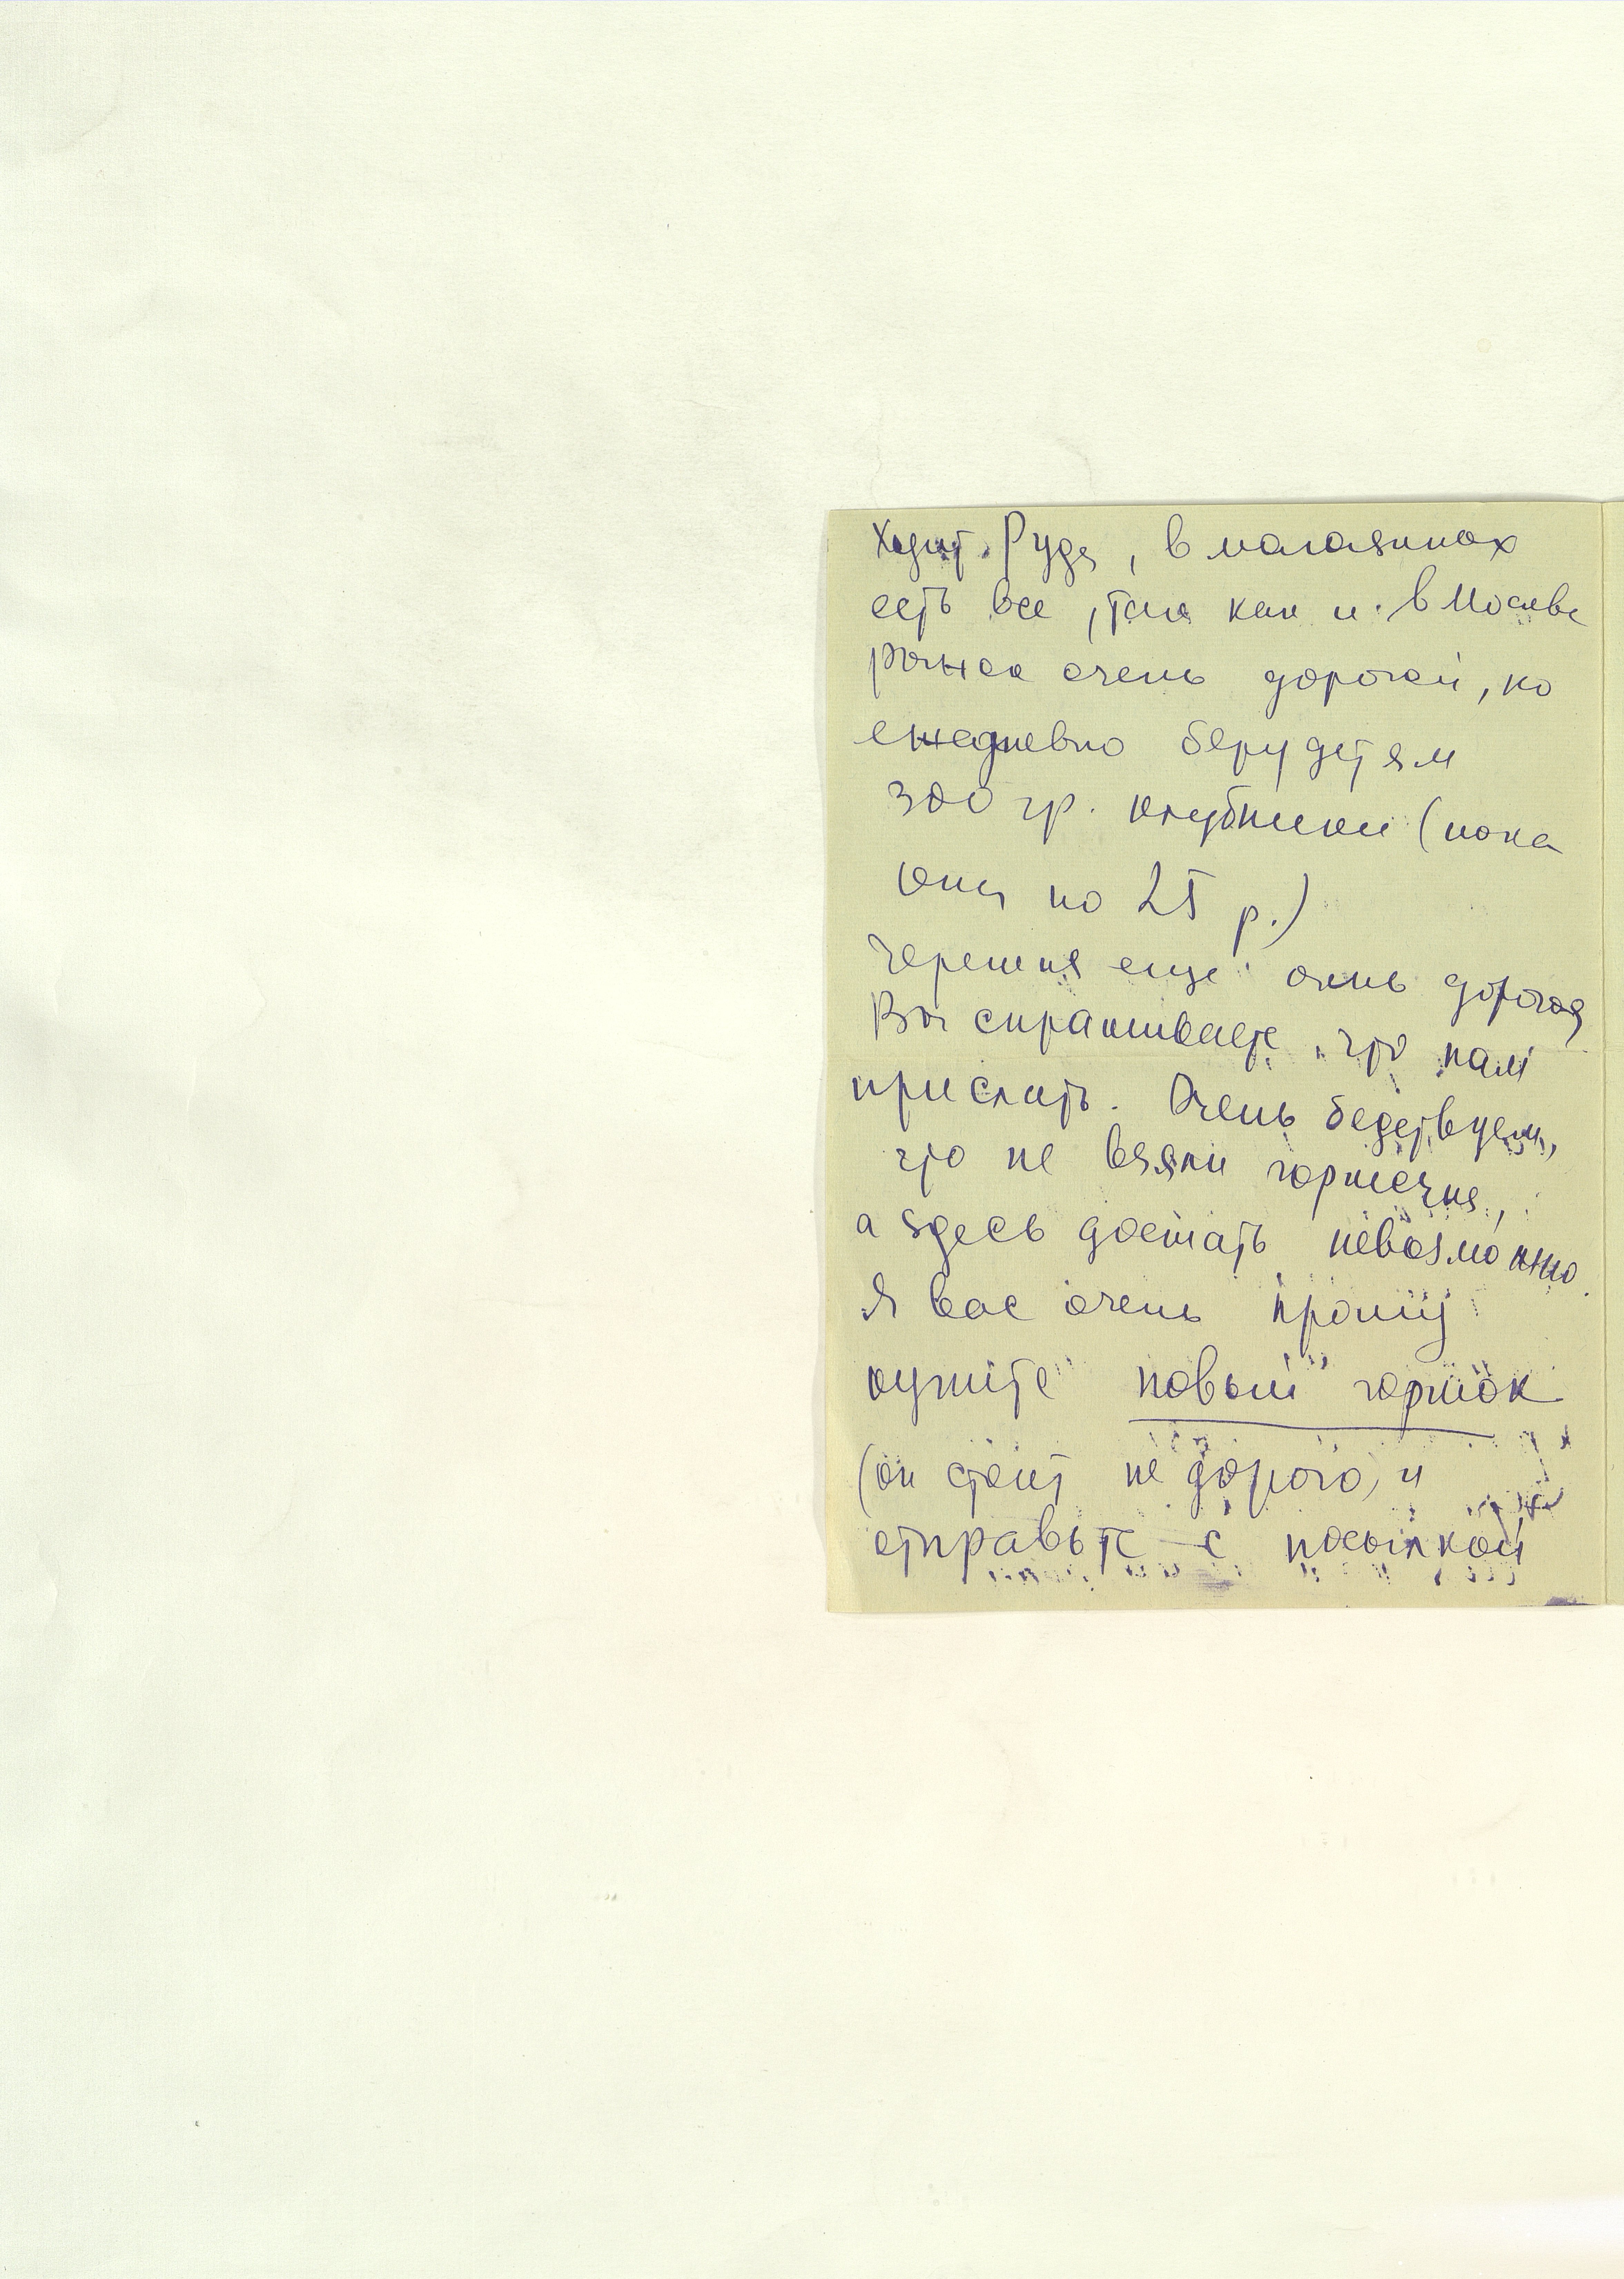 Ходит Рудя, в магазинах
есть все, так как и в Москве
рынок очень дорогой, но
ежедневно беру детям
300 гр. клубники (пока
она по 25 р.)
Черешня еще очень дорогая
Вы спрашиваете, что нам
прислать. Очень бедствуем,
что не взяли горшечка,
а здесь достать невозможно.
Я вас очень прошу
купите новый горшок
(он стоит не дорого, и
отправьте с посылкой